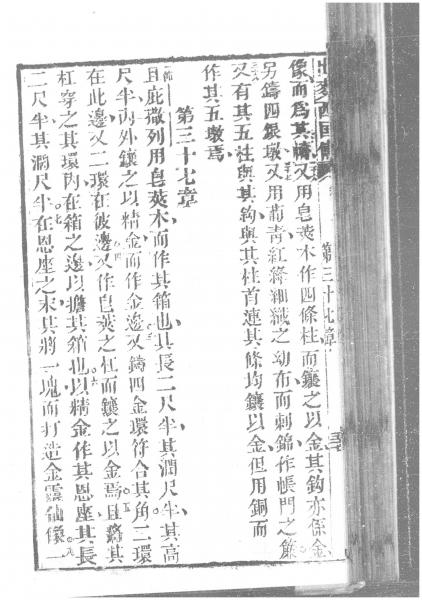 出麥西國傳 第三十七章
像而爲其幬又用皂莢木作四條柱而鑲之以金其鈎亦係金
另鑄四銀墩又用葡青紅絳細織之幼布而刺錦作帳門之簾
又有其五柱與其鈎與其柱首連其條均鑲以金但用銅而
作其五墩焉
第三十七章
且庇撒列用皂莢木而作其箱也其長二尺半其濶尺半其高
尺半內外鑲之以精金而作金邊又鑄四金環符合其角二環
在此邊又二環在彼邊又作皂莢之杠而鑲之以金焉且將其
杠穿之其環內在箱之邊以擔其箱也以精金作其恩座其長
二尺半其濶尺半在恩座之末其將一塊而打造金靈仙像一